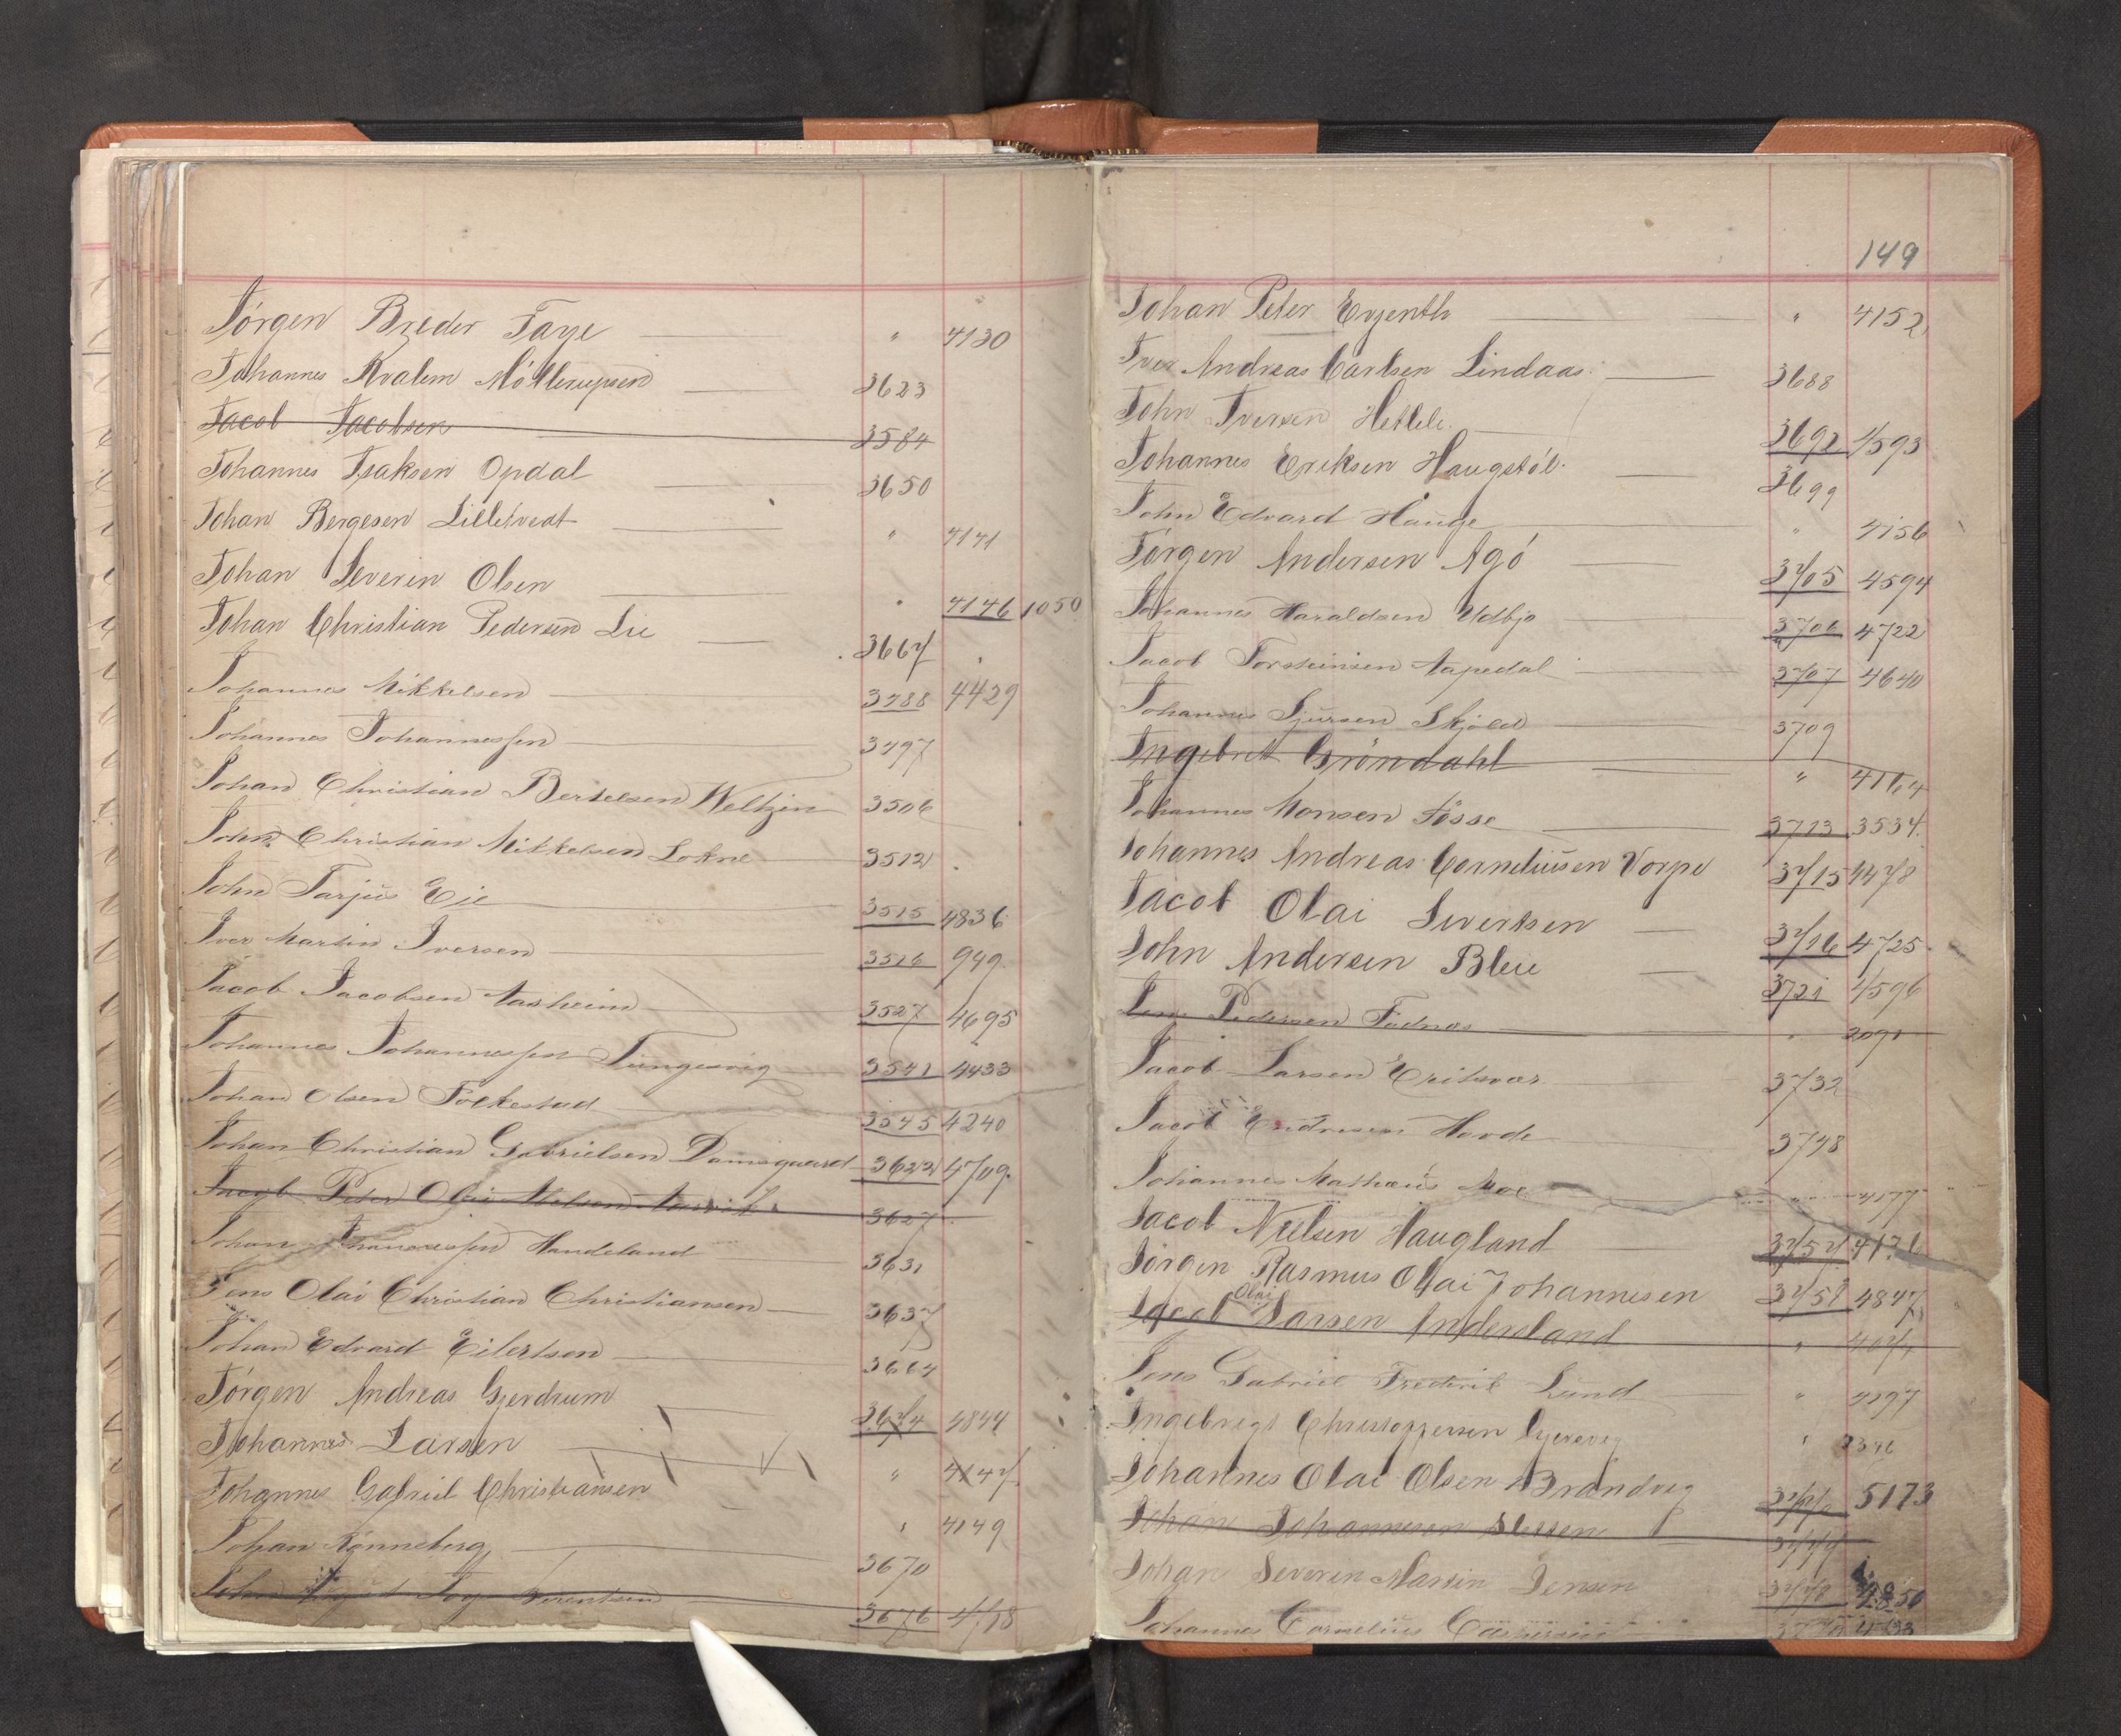 Jørgen Breder Faye " 4130
Johannes Kvalem Möllerupsen 3623
Jacob Jacobsen 3584
Johannes Isaksen Opdal 3650
Johan Bergesen Lilletvedt " 4141
Johan Severin Olsen " 4146 1050
Johan Christian Pedersen Lie 3667
Johannes Mikkelsen 3488 4429
Johannes Johannessen 3497
Johan Christian Bertelsen Weltzin 3506
John Christian Mikkelsen Lokne 3512
John Tarjus Eie 3515 4836
Iver Martin Iversen 3516 949
Jacob Jacobsen Aasheim 3527 4695
Johannes Johannessen Tungesvig 3541 4433
Johan Olsen Folkestad 3545 4240
Johan Christian Gabrielsen Damsgaard 3622 4709
Jacob Peter Olai 3627
Johan Johannessen Handeland 3631
Jens Olai Christian Christiansen 3637
Johan Edvard Eilertsen 3664
Jørgen Andreas Gjerdrum 3674 4844
Johannes Larsen " 4147
Johannes Gabriel Christiansen " 4149
Johan Rønneberg 3670
Johan Berentsen 3676
149
Johan Peter Erzenth " 4152
Iver Andreas Carlsen Lindaas 3688
John Iversen Hetlele 3692 4593
Johannes Eriksen Haugstöl 3699
John Edvard Hauge " 4156
Jørgen Andersen Agö 3705 4594
Johannes Haraldsen Udbjo 3706 4722
Jacob Torsteinsen Aapedal 3707 4640
Johannes Sjursen Skjold 3709
Ingebrett Gröndahl " 4164
Johannes Monsen Fosse 3713 3534
Johannes Andreas Corneliusen Vorpe 3715 4478
Jacob Olai Sivertsen 3716 4725
John Andersen Bleie 3721 4596
Jens Pedersen Fodnæs " 2091
Jacob Larsen Eritsvær 3732
Jacob Endresen Hovde 3748
Johannes Mathæus Moe " 4177
Jacob Nielsen Haugland 3757
Jørgen Rasmus Olai Johannesen 3759 4847
Olai
Jacob Larsen Andersland "
Jens Gabriel Frederik Lund " 4197
Ingebrigt Christoffersen Gjerevig "
Johannes Olai Olsen Brandvig 5173
Johan Johannesen
Johan Severin Martin Jensen 3778
Johannes Cornelius